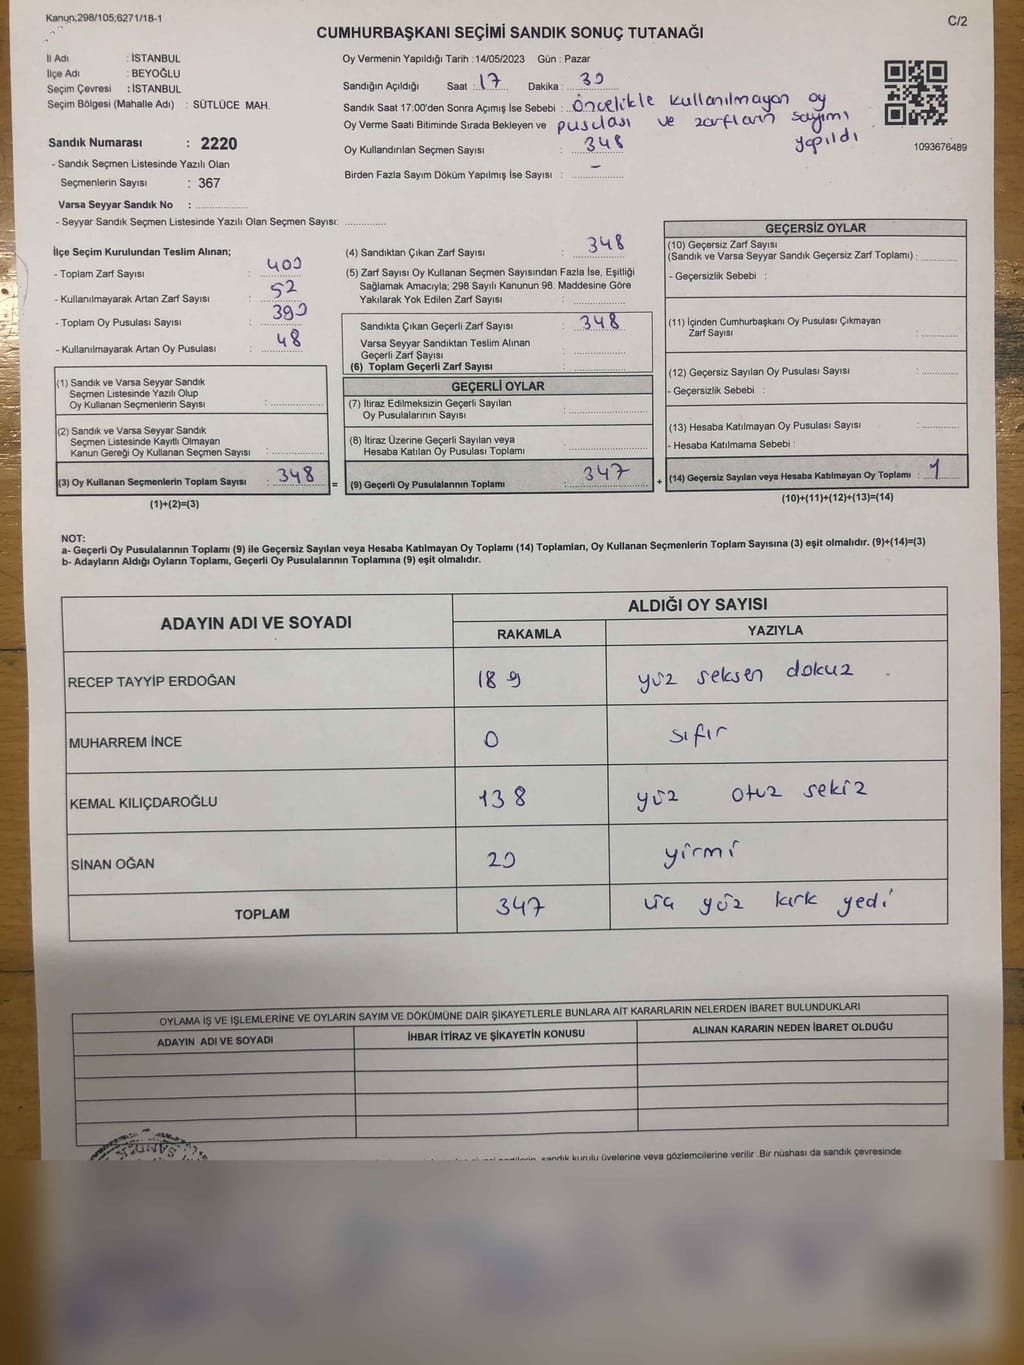 Kanun;298/105;6271/18-1
C/2
CUMHURBAŞKANI SEÇİMİ SANDIK SONUÇ TUTANAĞI
İl Adı : İSTANBUL
İlçe Adı : BEYOĞLU
Seçim Çevresi : İSTANBUL
Seçim Bölgesi (Mahalle Adı) : SÜTLÜCE MAH.
Sandık Numarası : 2220
- Sandık Seçmen Listesinde Yazılı Olan
Seçmenlerin Sayısı : 367
Varsa Seyyar Sandık No : ..................
- Seyyar Sandık Seçmen Listesinde Yazılı Olan Seçmen Sayısı: ..............
Oy Vermenin Yapıldığı Tarih : 14/05/2023 Gün : Pazar
Sandığın Açıldığı Saat : 17 Dakika : 30
Sandık Saat 17:00'den Sonra Açımış İse Sebebi : Öncelikle kullanılmayan oy
Oy Verme Saati Bitiminde Sırada Bekleyen ve pusulası ve zarfların sayımı
yapıldı
Oy Kullandırılan Seçmen Sayısı : 348
Birden Fazla Sayım Döküm Yapılmış İse Sayısı : -
1093676489
İlçe Seçim Kurulundan Teslim Alınan;
- Toplam Zarf Sayısı : 400
- Kullanılmayarak Artan Zarf Sayısı : 52
- Toplam Oy Pusulası Sayısı : 390
- Kullanılmayarak Artan Oy Pusulası : 48
(1) Sandık ve Varsa Seyyar Sandık
Seçmen Listesinde Yazılı Olup
Oy Kullanan Seçmenlerin Sayısı : ..................
(2) Sandık ve Varsa Seyyar Sandık
Seçmen Listesinde Kayıtlı Olmayan
Kanun Gereği Oy Kullanan Seçmen Sayısı : ..................
(3) Oy Kullanan Seçmenlerin Toplam Sayısı : 348
(1)+(2)=(3)
=
(4) Sandıktan Çıkan Zarf Sayısı : 348
(5) Zarf Sayısı Oy Kullanan Seçmen Sayısından Fazla İse, Eşitliği
Sağlamak Amacıyla; 298 Sayılı Kanunun 98. Maddesine Göre
Yakılarak Yok Edilen Zarf Sayısı : ..................
Sandıkta Çıkan Geçerli Zarf Sayısı : 348
Varsa Seyyar Sandıktan Teslim Alınan
Geçerli Zarf Sayısı : ..................
(6) Toplam Geçerli Zarf Sayısı : ..................
GEÇERLİ OYLAR
(7) İtiraz Edilmeksizin Geçerli Sayılan
Oy Pusulalarının Sayısı : ..................
(8) İtiraz Üzerine Geçerli Sayılan veya
Hesaba Katılan Oy Pusulası Toplamı : ..................
(9) Geçerli Oy Pusulalarının Toplamı : 347
+
GEÇERSİZ OYLAR
(10) Geçersiz Zarf Sayısı
(Sandık ve Varsa Seyyar Sandık Geçersiz Zarf Toplamı) : ............
- Geçersizlik Sebebi :
(11) İçinden Cumhurbaşkanı Oy Pusulası Çıkmayan
Zarf Sayısı : ............
(12) Geçersiz Sayılan Oy Pusulası Sayısı : ............
- Geçersizlik Sebebi :
(13) Hesaba Katılmayan Oy Pusulası Sayısı : ............
- Hesaba Katılmama Sebebi :
(14) Geçersiz Sayılan veya Hesaba Katılmayan Oy Toplamı : 1
(10)+(11)+(12)+(13)=(14)
NOT:
a- Geçerli Oy Pusulalarının Toplamı (9) ile Geçersiz Sayılan veya Hesaba Katılmayan Oy Toplamı (14) Toplamları, Oy Kullanan Seçmenlerin Toplam Sayısına (3) eşit olmalıdır. (9)+(14)=(3)
b- Adayların Aldığı Oyların Toplamı, Geçerli Oy Pusulalarının Toplamına (9) eşit olmalıdır.
ADAYIN ADI VE SOYADI
ALDIĞI OY SAYISI
RAKAMLA YAZIYLA
RECEP TAYYİP ERDOĞAN 189 yüz seksen dokuz
MUHARREM İNCE 0 sıfır
KEMAL KILIÇDAROĞLU 138 yüz otuz sekiz
SİNAN OĞAN 20 yirmi
TOPLAM 347 üç yüz kırk yedi
OYLAMA İŞ VE İŞLEMLERİNE VE OYLARIN SAYIM VE DÖKÜMÜNE DAİR ŞİKAYETLERLE BUNLARA AİT KARARLARIN NELERDEN İBARET BULUNDUKLARI
ADAYIN ADI VE SOYADI İHBAR İTİRAZ VE ŞİKAYETİN KONUSU ALINAN KARARIN NEDEN İBARET OLDUĞU
sandık kurulu üyelerine veya gözlemcilerine verilir .Bir nüshası da sandık çevresinde